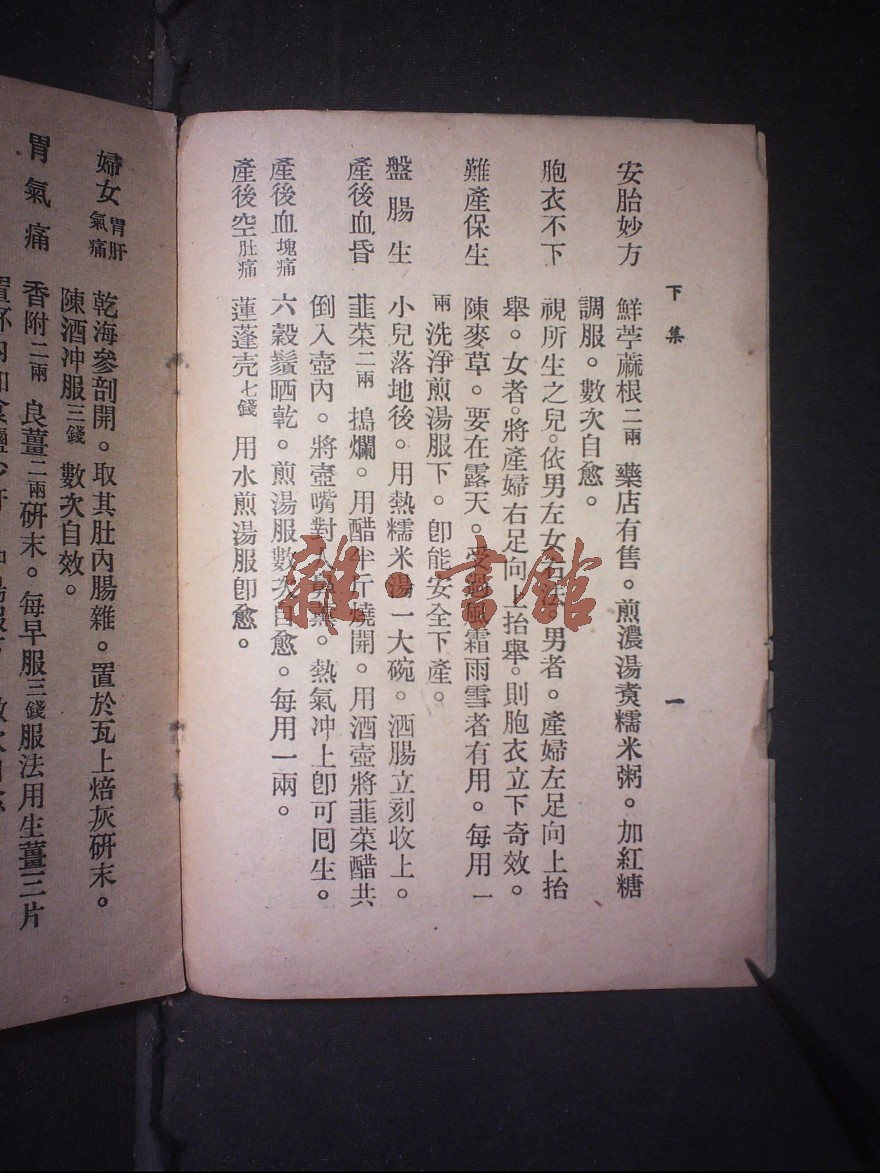 下集 一
安胎妙方 鮮苧蔴根二兩 藥店有售。煎濃湯煑糯米粥。加紅糖
調服。數次自愈。
胞衣不下 視所生之兒。依男左女右法。男者。產婦左足向上抬
舉。女者。將產婦右足向上抬舉。則胞衣立下奇效。
難產保生 陳麥草。要在露天。受過風霜雨雪者有用。每用一
兩 洗淨煎湯服下。卽能安全下產。
盤腸生 小兒落地後。用熱糯米湯一大碗。洒腸立刻收上。
產後血昏 韭菜二兩 搗爛。用醋半斤燒開。用酒壺將韭菜醋共
倒入壺內。將壺嘴對人鼻熏。熱氣冲上卽可囘生。
產後血塊痛 六穀鬚晒乾。煎湯服數次自愈。每用一兩。
產後空肚痛 蓮蓬壳七錢 用水煎湯服卽愈。
婦女胃肝氣痛 乾海參剖開。取其肚內腸雜。置於瓦上焙灰研末。
陳酒冲服三錢 數次自效。
胃氣痛 香附二兩 良薑二兩研末。每早服三錢服法用生薑三片
雜·書館